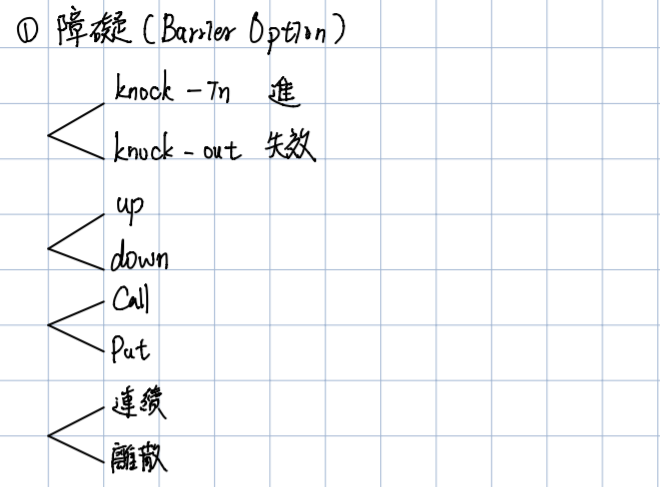 ① 障礙 (Barrier Option)
knock-in 進
knock-out 失效
up
down
Call
Put
連續
離散